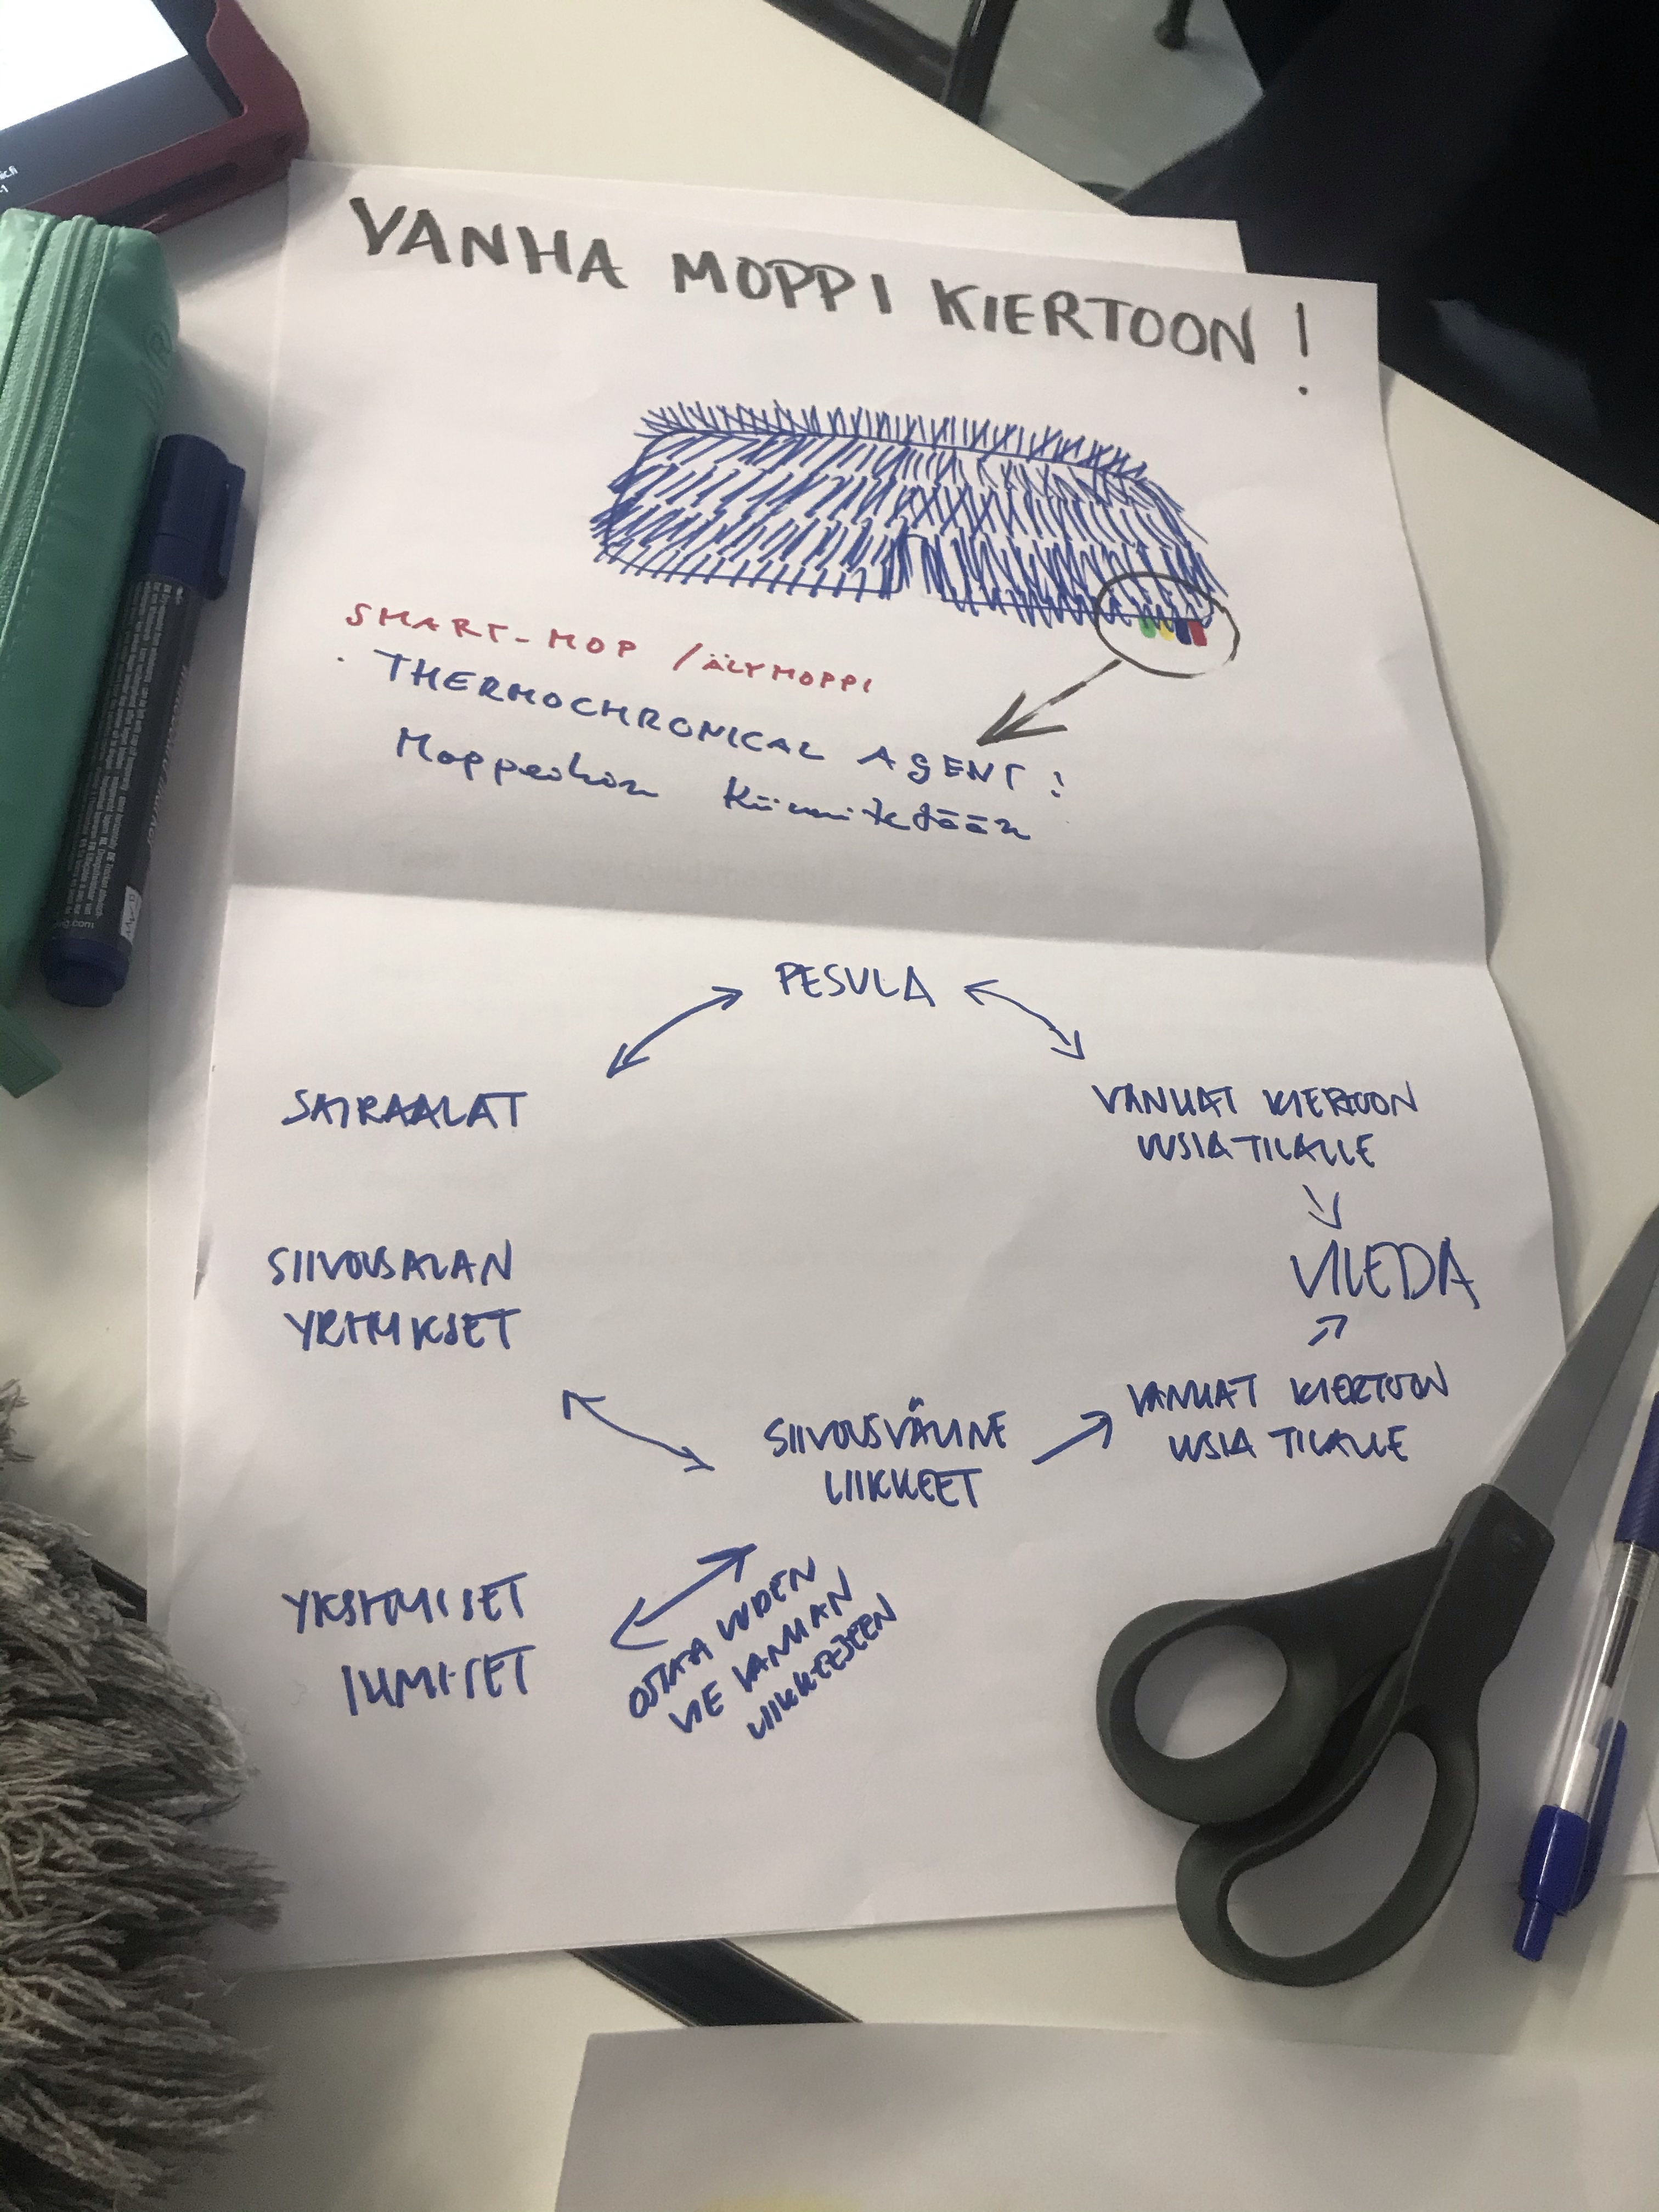 VANHA MOPPI KIERTOON!
SMART-MOP / ÄLYMOPPI
· THERMOCHROMICAL AGENT:
Moppeihin kiinnitetään
PESULA
SAIRAALAT
VANHAT KIERTOON
UUSIA TILALLE
VILEDA
SIIVOUSALAN
YRITYKSET
VANHAT KIERTOON
UUSIA TILALLE
SIIVOUSVÄLINE
LIIKKEET
YKSITYISET
IHMISET
OSTAA UUDEN
VIE VANHAN
LIIKKEESEEN